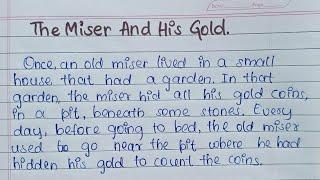 The Miser And His Gold.
Once, an old miser lived in a small
house, that had a garden. In that
garden, the miser hid all his gold coins,
in a pit, beneath some stones. Every
day, before going to bed, the old miser
used to go near the pit where he had
hidden his gold to count the coins.